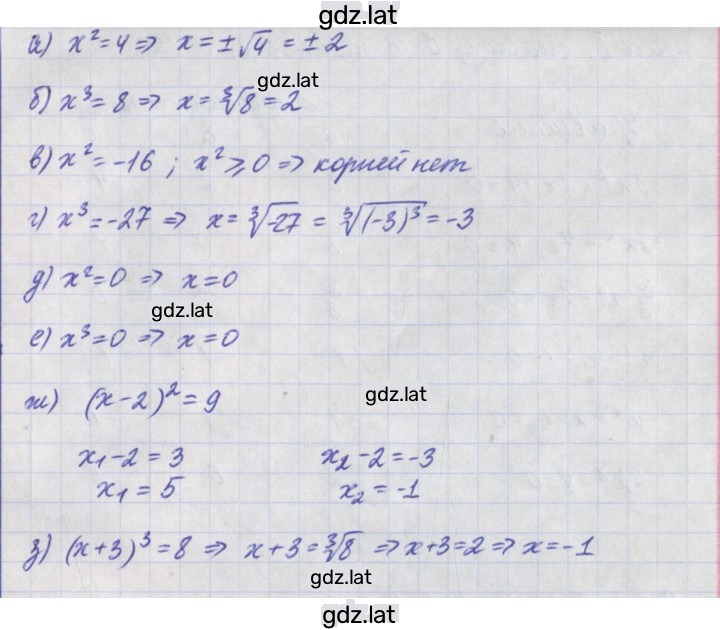 gdz.lat
а) x² = 4 ⇒ x = ±√4 = ±2
gdz.lat
б) x³ = 8 ⇒ x = ∛8 = 2
в) x² = -16 ; x² ⩾ 0 ⇒ корней нет
г) x³ = -27 ⇒ x = ∛-27 = ∛(-3)³ = -3
д) x² = 0 ⇒ x = 0
gdz.lat
е) x³ = 0 ⇒ x = 0
gdz.lat
ж) (x - 2)² = 9
x₁ - 2 = 3 x₂ - 2 = -3
x₁ = 5 x₂ = -1
з) (x + 3)³ = 8 ⇒ x + 3 = ∛8 ⇒ x + 3 = 2 ⇒ x = -1
gdz.lat
gdz.lat